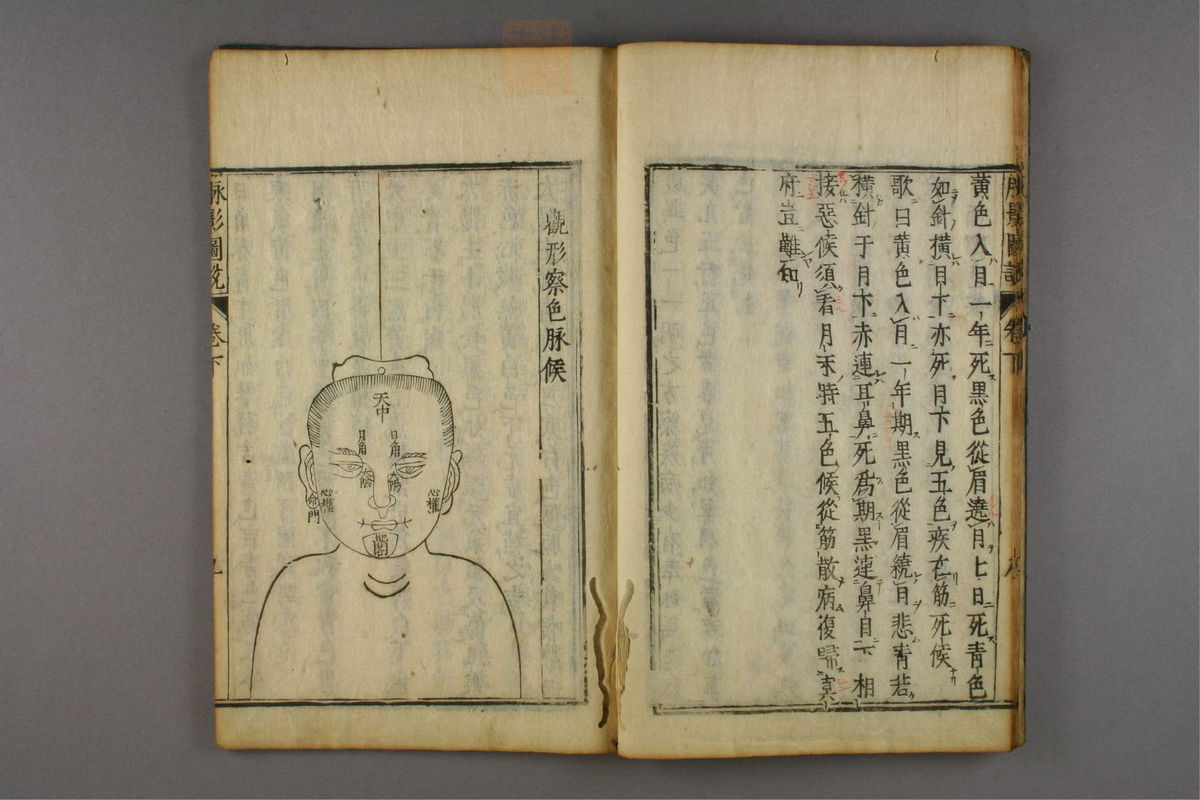 黄色入目一年死黒色從眉遶目七日死青色
如針横目下亦死目下見五色疾在筋死候
歌曰黄色入目一年期黒色從眉繞目悲青若
横針于目下赤連耳鼻死為期黒連鼻目六相
接惡候須看目下時五色候從筋散病復歸冥
府豈難知
脉影圖説 卷下
觀形察色脉候
天中
日角 日角
太陰 太陽
心權 心權
命門
地閣
脉影圖説 卷下 九